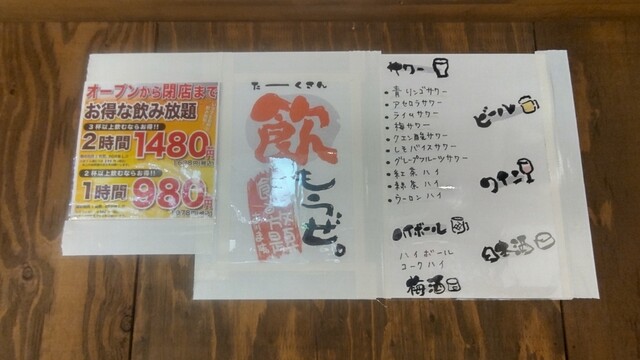 オープンから閉店まで
お得な飲み放題
3杯以上飲むならお得!!
2時間 1480円
2杯以上飲むならお得!!
1時間 980円
たーくさん
飲もうぜ。
サワー
・青リンゴサワー
・アセロラサワー
・ライムサワー
・梅サワー
・クエン酸サワー
・しそパイスサワー
・グレープフルーツサワー
・紅茶ハイ
・緑茶ハイ
・ウーロンハイ
ハイボール
ハイボール
コークハイ
梅酒
ビール
ワイン
日本酒